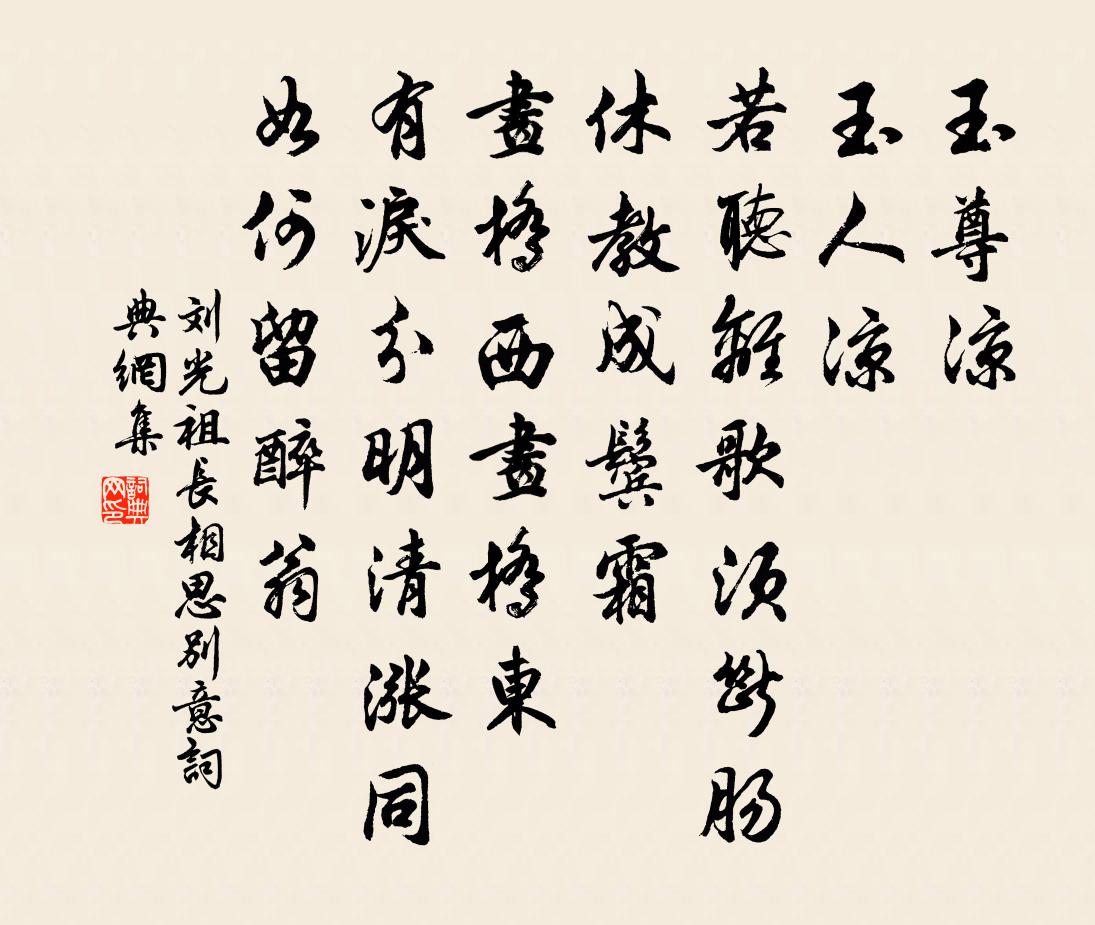 玉尊涼
玉人涼
若聽離歌須斷腸
休教成鬢霜
畫橋西畫橋東
有淚分明清漲同
如何留醉翁
刘光祖長相思別意詞
典網集
詞典
网印